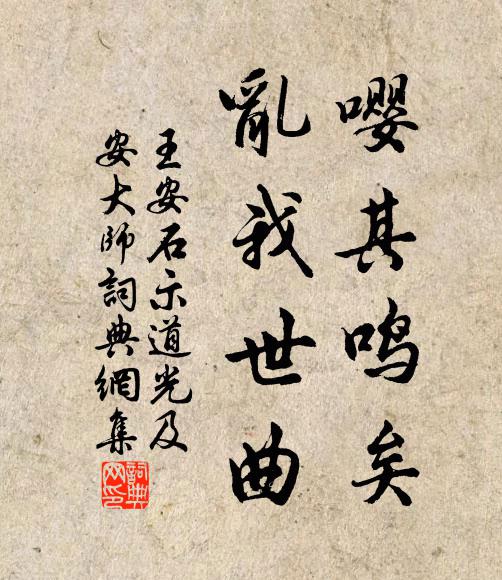 嘤其鸣矣
亂我世曲
王安石示道光及
安大師詞典網集
詞典
网印